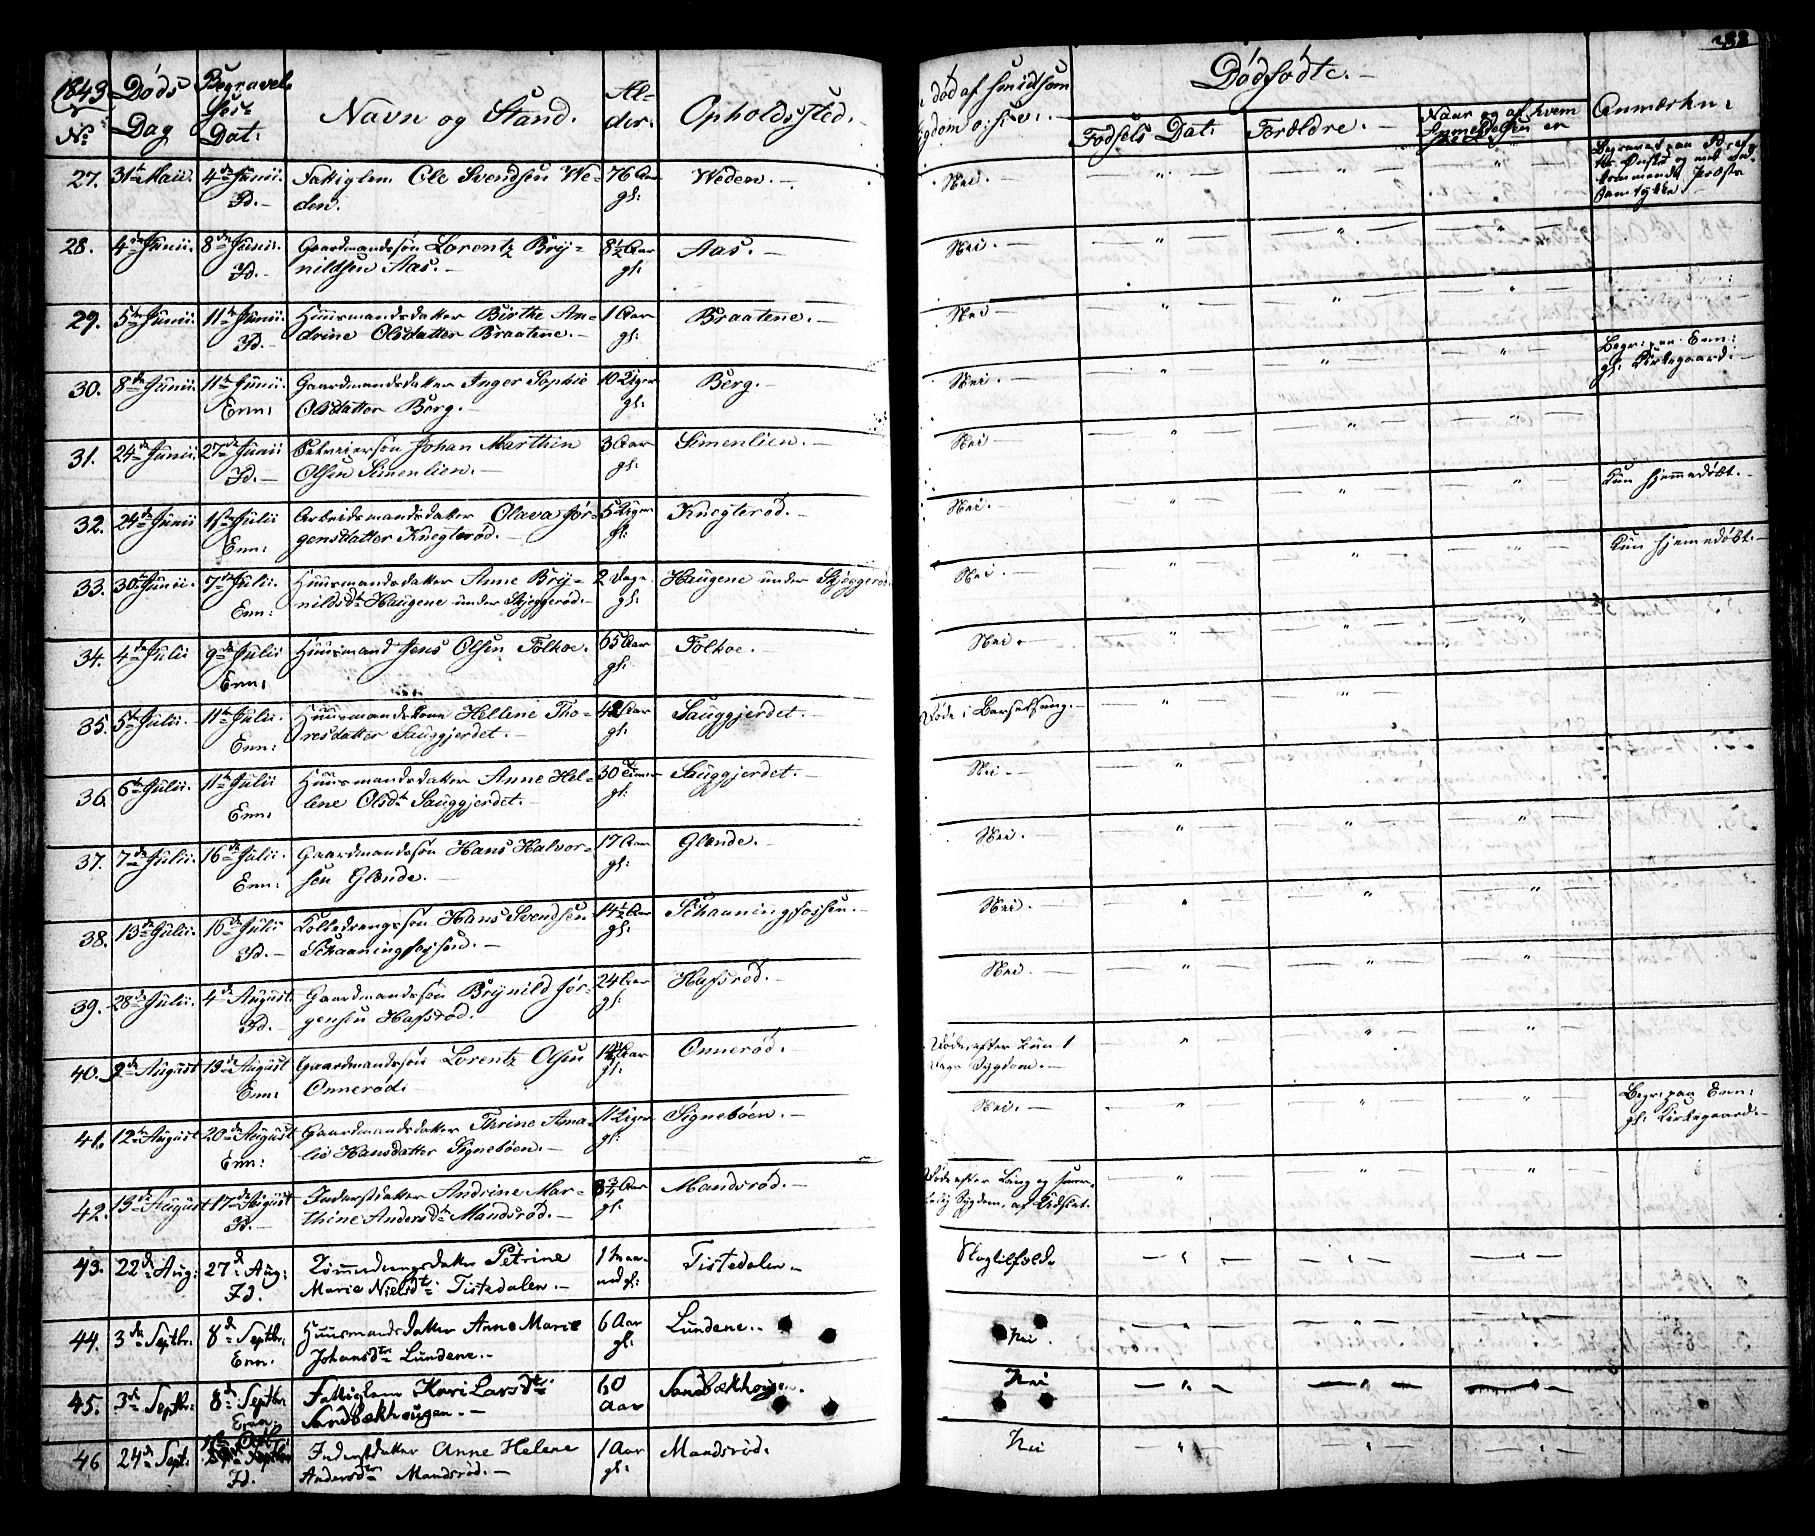 238
1843
No
Døds
Dag
Begravel-
ses-
Dat:
Navn og Stand.
Al-
der.
Opholdssted.
død af smidsom
Sygdom o: s: v:
Dødfødte.
Fødsels Dat:
Forældre.
Naar og af hvem
Anmeldelsen er
Anmærkn:
27. 31te Maii. 4de Junii. Fattiglem Ole Svendsen We- 76 Aar Weden. Nei.
Id. den. gl:
28. 4de Junii. 8de Junii. Gaardmandssøn Lorentz Bry- 8½ Aar Aas. Nei.
Id. nildsen Aas. gl:
29. 5te Junii. 11te Junii. Huusmandsdatter Birthe An- 1 Aar Braatene. Nei.
Id. drine Olsdatter Braatene. gl:
30. 8de Junii. 11te Junii. Gaardmandsdatter Inger Sophie 10 Uger Berg. Nei. Begr: paa Enn:
Enn: Olsdatter Berg. gl: gl: Kirkegaard.
31. 24de Junii. 27de Junii Johan Marthin 3 Aar Simenlien. Nei
Id. Olsen Simenlien. gl:
32. 24de Junii 1ste Julii Arbeidsmandsdatter Olava Jør- 5 Uger Knegterød. Nei. Kun hjemmedøbt.
Enn: gensdatter Knegterød. gl:
33. 30te Junii. 7de Julii. Huusmandsdatter Anne Bry- 2 Dage Haugene under Skjeggerød. Nei. Kun hjemedøbt.
Enn: nildsdtr Haugene under Skjeggerød. gl:
34. 4de Julii 9de Julii Huusmand Jens Olsen Folkoe. 65 Aar Folkoe. Nei.
Enn: gl:
35. 5te Julii. 11te Julii. Huusmandskone Hellene Tho- 42 Aar Sauggjerdet. Døde i Barselseng.
Enn: resdatter Sauggjerdet. gl:
36. 6te Julii. 11te Julii Huusmandsdatter Anne Hel- 30 Timer Sauggjerdet. Nei
Enn: lene Olsdtr Sauggjerdet. gl:
37. 7de Julii. 16de Julii. Gaardmandssøn Hans Halvor- 17 Aar Glende. Nei.
Enn: sen Glende. gl:
38. 13de Julii. 16de Julii Hans Svendsen 14½ Aar Schaaningfossen. Nei.
Id. Schaaningfossen. gl:
39. 28de Julii. 4de August Gaardmandssøn Brynild Jør- 24 Aar Hafsrød. Nei.
Id. gensen Hafsrød. gl:
40. 9de August 13de August Gaardmandssøn Lorentz Olsen Aar Onnerød. Døde efter kun 1
Enn: Onnerød. gl: Dags Sygdom.
41. 12te August 20de August Gaardmandsdatter Thrine Ama- 11 Uger Signebøen. Nei. Begr: paa Enn:
Enn: lie Hansdatter Signebøen. gl: gl: Kirkegaard.
42. 13de August 17de August Inderstdatter Andrine Mar- ¾ Aar Mandsrød. Døde efter lang og
Id. thine Andersdtr Mandsrød. gl: Sygdom, af
43. 22de Aug: 27de Aug: Tømmedrengsdatter Petrine 1 Maa- Tistedalen.
Id. Marie Nielsdtr Tistedalen. ned gl:
44. 3de Septbr: 8de Septbr: Huusmandsdatter Anne Marie 6 Aar Lundene. Nei
Enn. Johansdtr Lundene. gl:
45. 3de Septbr: 8de Septbr Fattiglem Kari Larsdtr 60 Sandbækhougen. Nei
Enn. Sandbækhougen. Aar
46 24de Sept: Inderstdatter Anne Helene 1 Aar Mandsrød. Nei
Id. Andersdtr Mandsrød. gl: